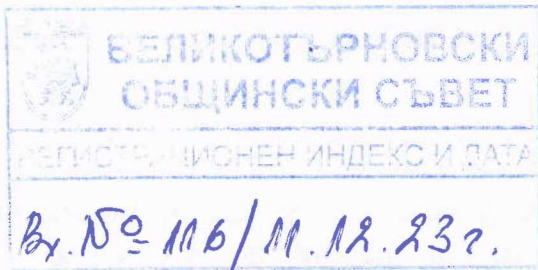 ВЕЛИКОТЪРНОВСКИ
ОБЩИНСКИ СЪВЕТ
РЕГИСТРАЦИОНЕН ИНДЕКС И ДАТА
Вх. № 116/11.12.23г.